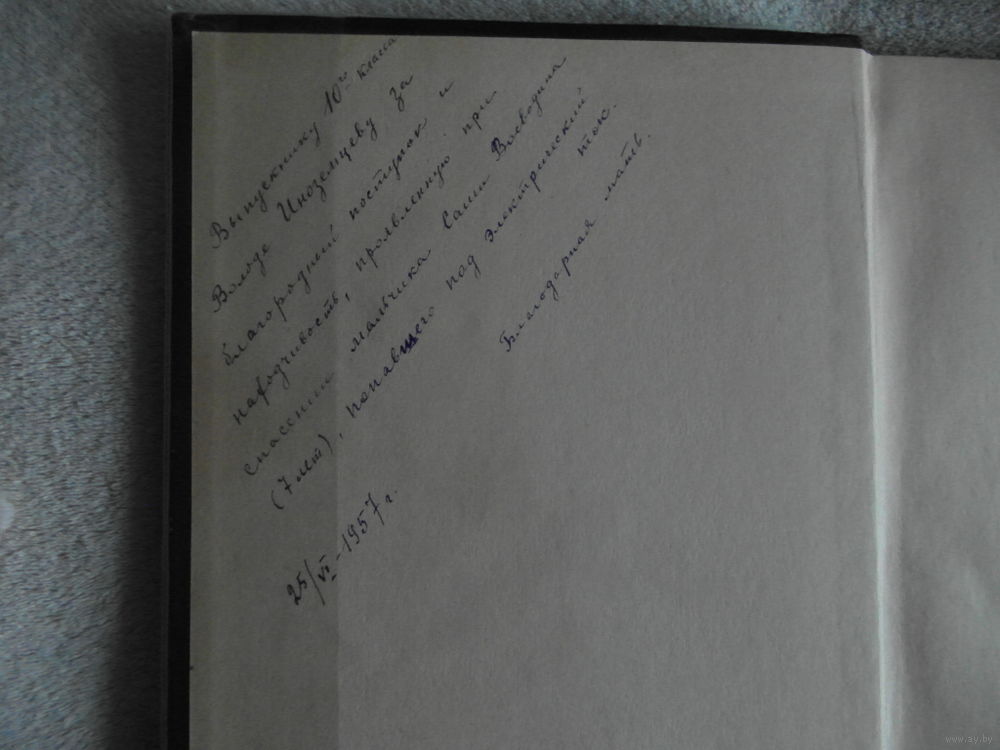 Выпускнику 10го класса
Володе Иноземцеву за
благородный поступок и
находчивость, проявленную при
спасении мальчика Саши Воеводина
(7 лет), попавшего под электрический
ток.
Благодарная мать.
25/VI-1957 г.
www.ay.by